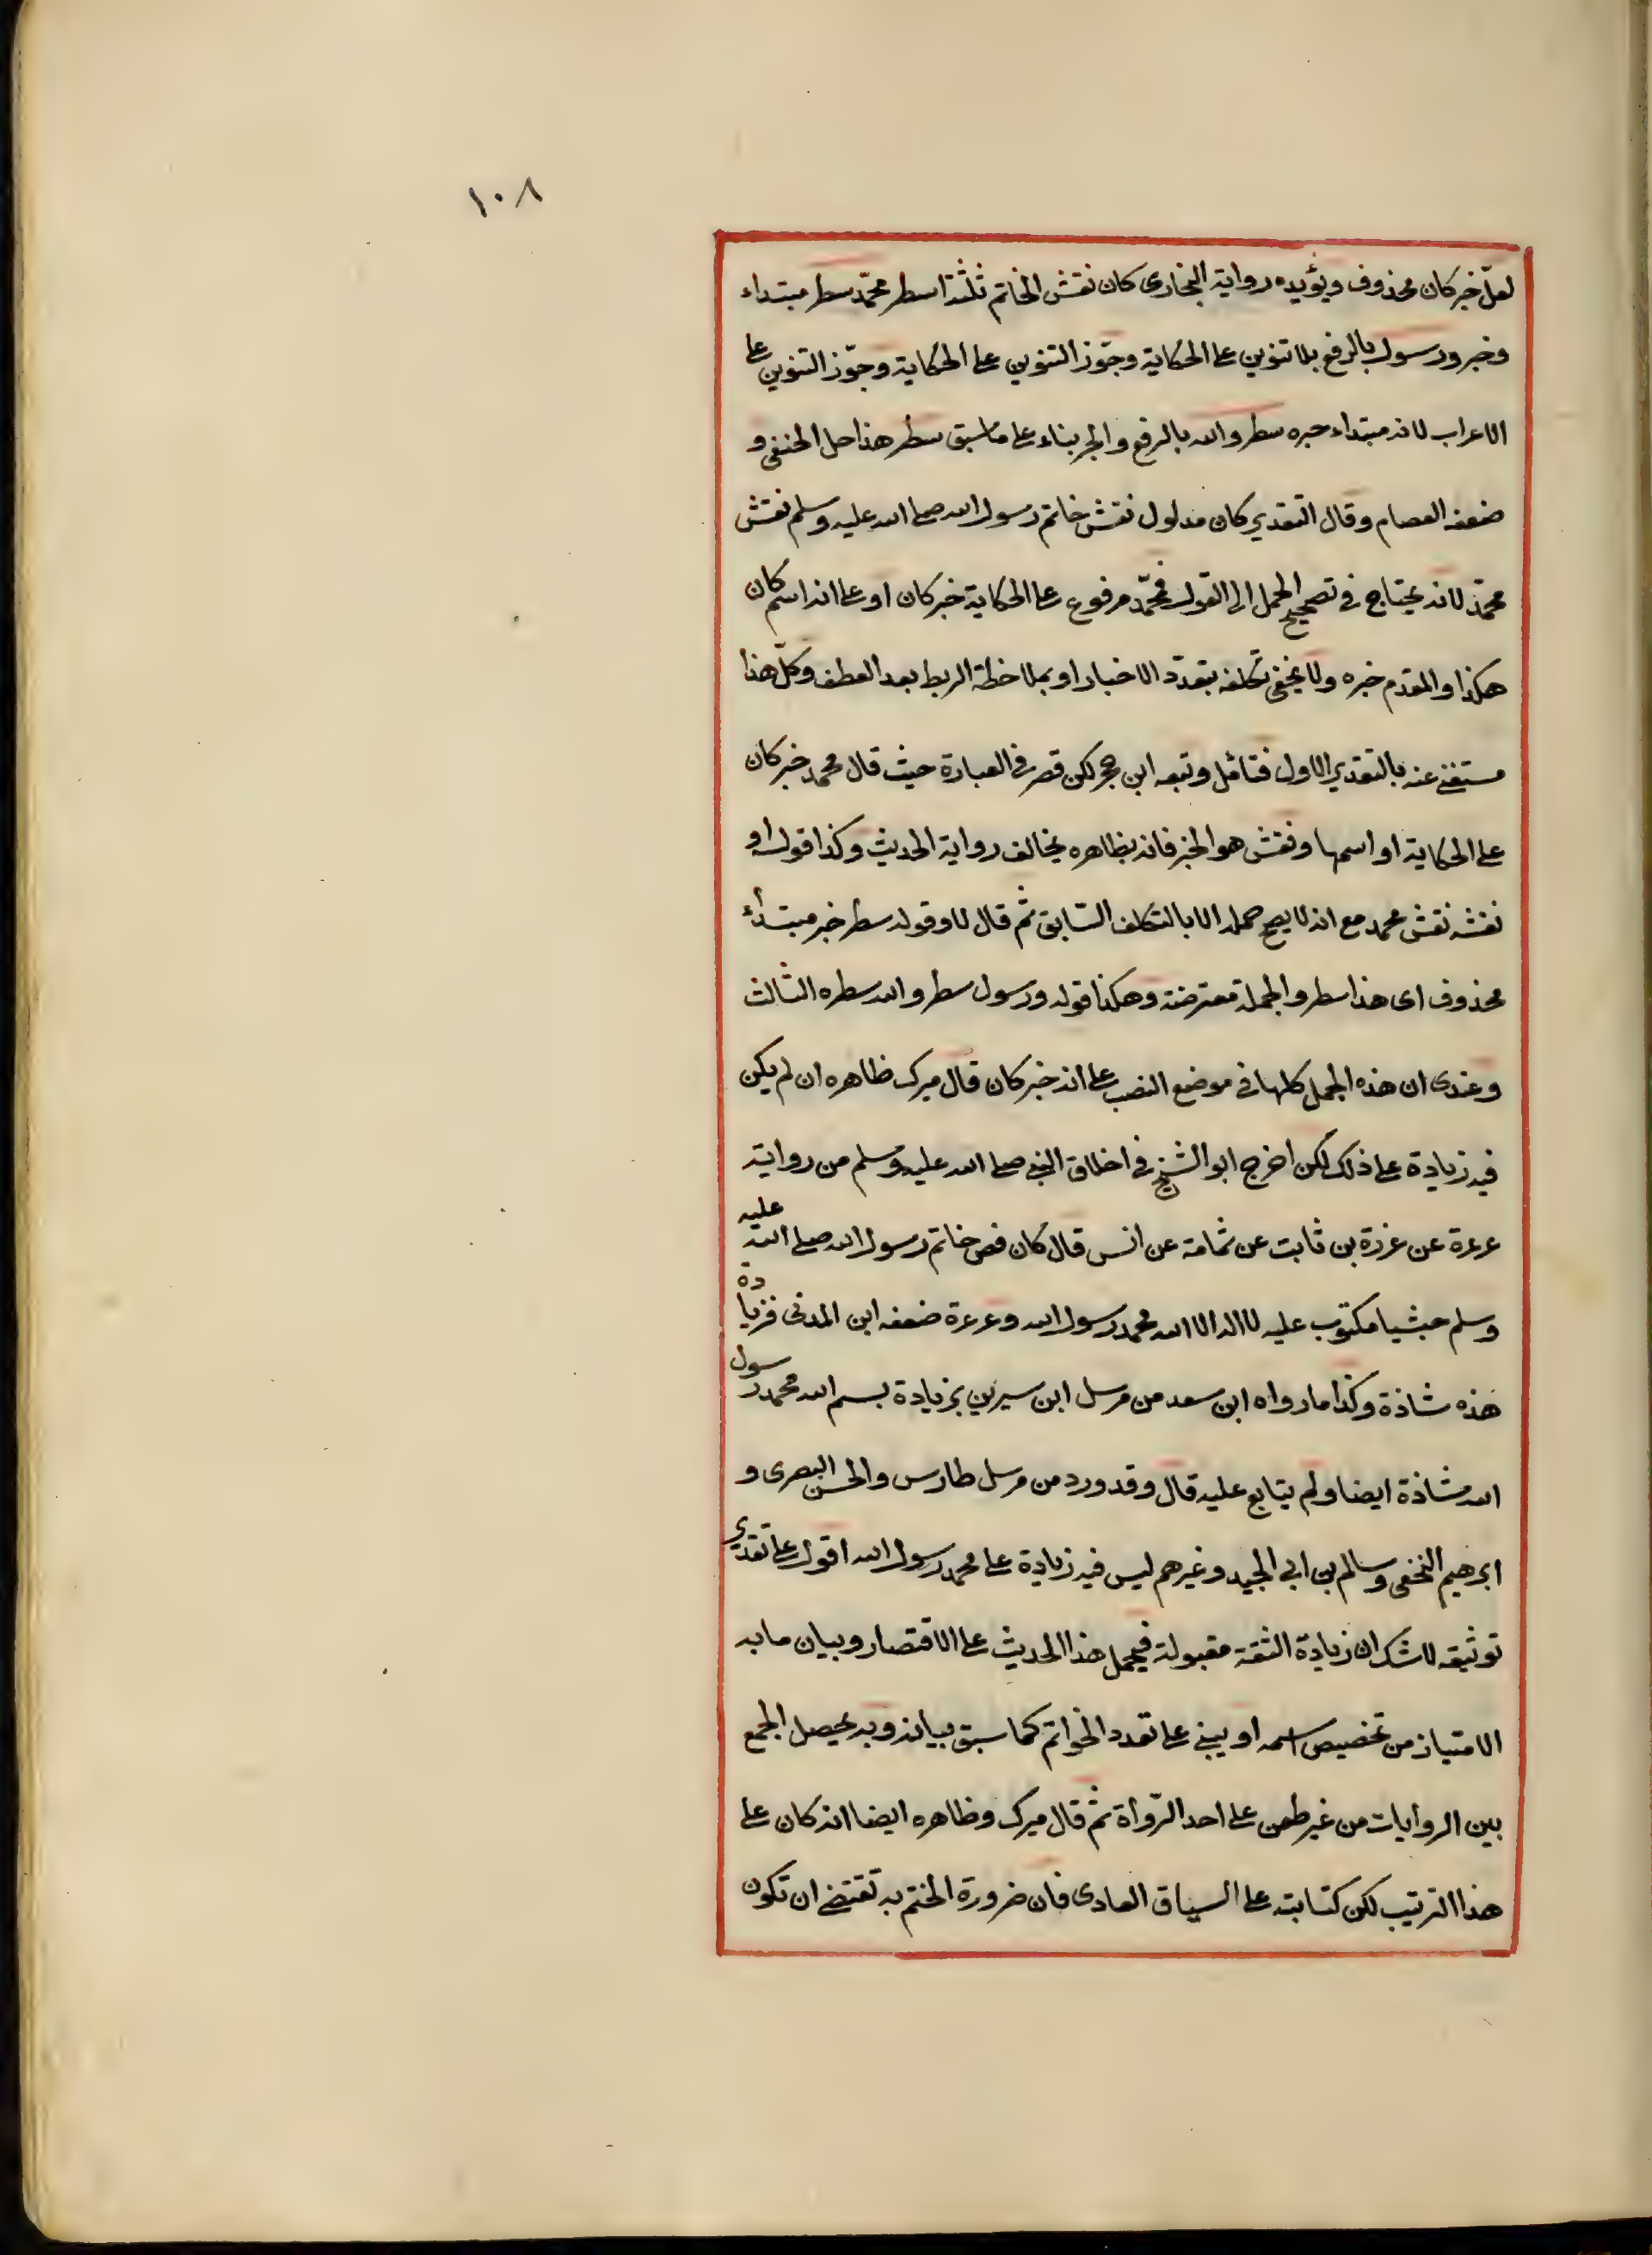 ١٠٨
لعلّ خبر كان محذوف ويؤيده رواية البخارى كان نقش الخاتم ثلثة اسطر محمّد سطر مبتداء
وخبر ورسول بالرفع بلا تنوين على الحكاية وجوّز التنوين على الحكاية وجوّز التنوين على
الاعراب لانه مبتداء خبره سطر والله بالرفع والجر بناء على ما سبق سطر هذا حل الحنفى و
ضعفه العصام وقال التقدير كان مدلول نقش خاتم رسول الله صلى الله عليه وسلم نقش
محمّد لانه يحتاج فى تصحيح الحمل الى القول فمحمّد مرفوع على الحكاية خبر كان او على انه اسم كان
هكذا والمقدم خبره ولا يخفى تكلفه بتعدّد الاخبار او بملاحظة الربط بعد العطف وكلّ هذا
مستغنى عنه بالتقدير الاول فتامّل وتبعه ابن حجر لكن قصر فى العبارة حيث قال محمد خبر كان
على الحكاية او اسمها ونقش هو الخبر فانه بظاهره يخالف رواية الحديث وكذا قوله او
نقشه نقش محمد مع انه لا يصح حمله الا بالتكلف السّابق ثم قال لاو قوله سطر خبر مبتداء
محذوف اى هذا سطر والجملة معترضة وهكذا قوله ورسول سطر والله سطره الثالث
وعندى ان هذه الجمل كلها فى موضع النصب على انه خبر كان قال ميرك ظاهره ان لم يكن
فيه زيادة على ذلك لكن اخرج ابو الشيخ فى اخلاق النبى صلى الله عليه وسلم من رواية
عرعرة عن عزرة بن ثابت عن ثمامة عن انس قال كان فص خاتم رسول الله صلى الله عليه
وسلم حبشيا مكتوب عليه لا اله الا الله محمد رسول الله وعرعرة ضعفه ابن المدنى فزيادة
هذه شاذة وكذا ما رواه ابن سعد من مرسل ابن سيرين بزيادة بسم الله محمد رسول
الله شاذة ايضا ولم يتابع عليه قال وقد ورد من مرسل طاوس والحسن البصرى و
ابرهيم النخعى وسالم بن ابى الجيد وغيرهم ليس فيه زيادة على محمد رسول الله اقول على تقدير
توثيقه لا شك ان زيادة الثقة مقبولة فيحمل هذا الحديث على الاقتصار وبيان ما به
الامتياز من تخصيص اسمه او يبنى على تعدد الخواتم كما سبق بيانه وبه يحصل الجمع
بين الروايات من غير طعن على احد الرّواة ثم قال ميرك وظاهره ايضا انه كان على
هذا الترتيب لكن كتابته على السياق العادى فان ضرورة الختم به تقتضى ان تكون